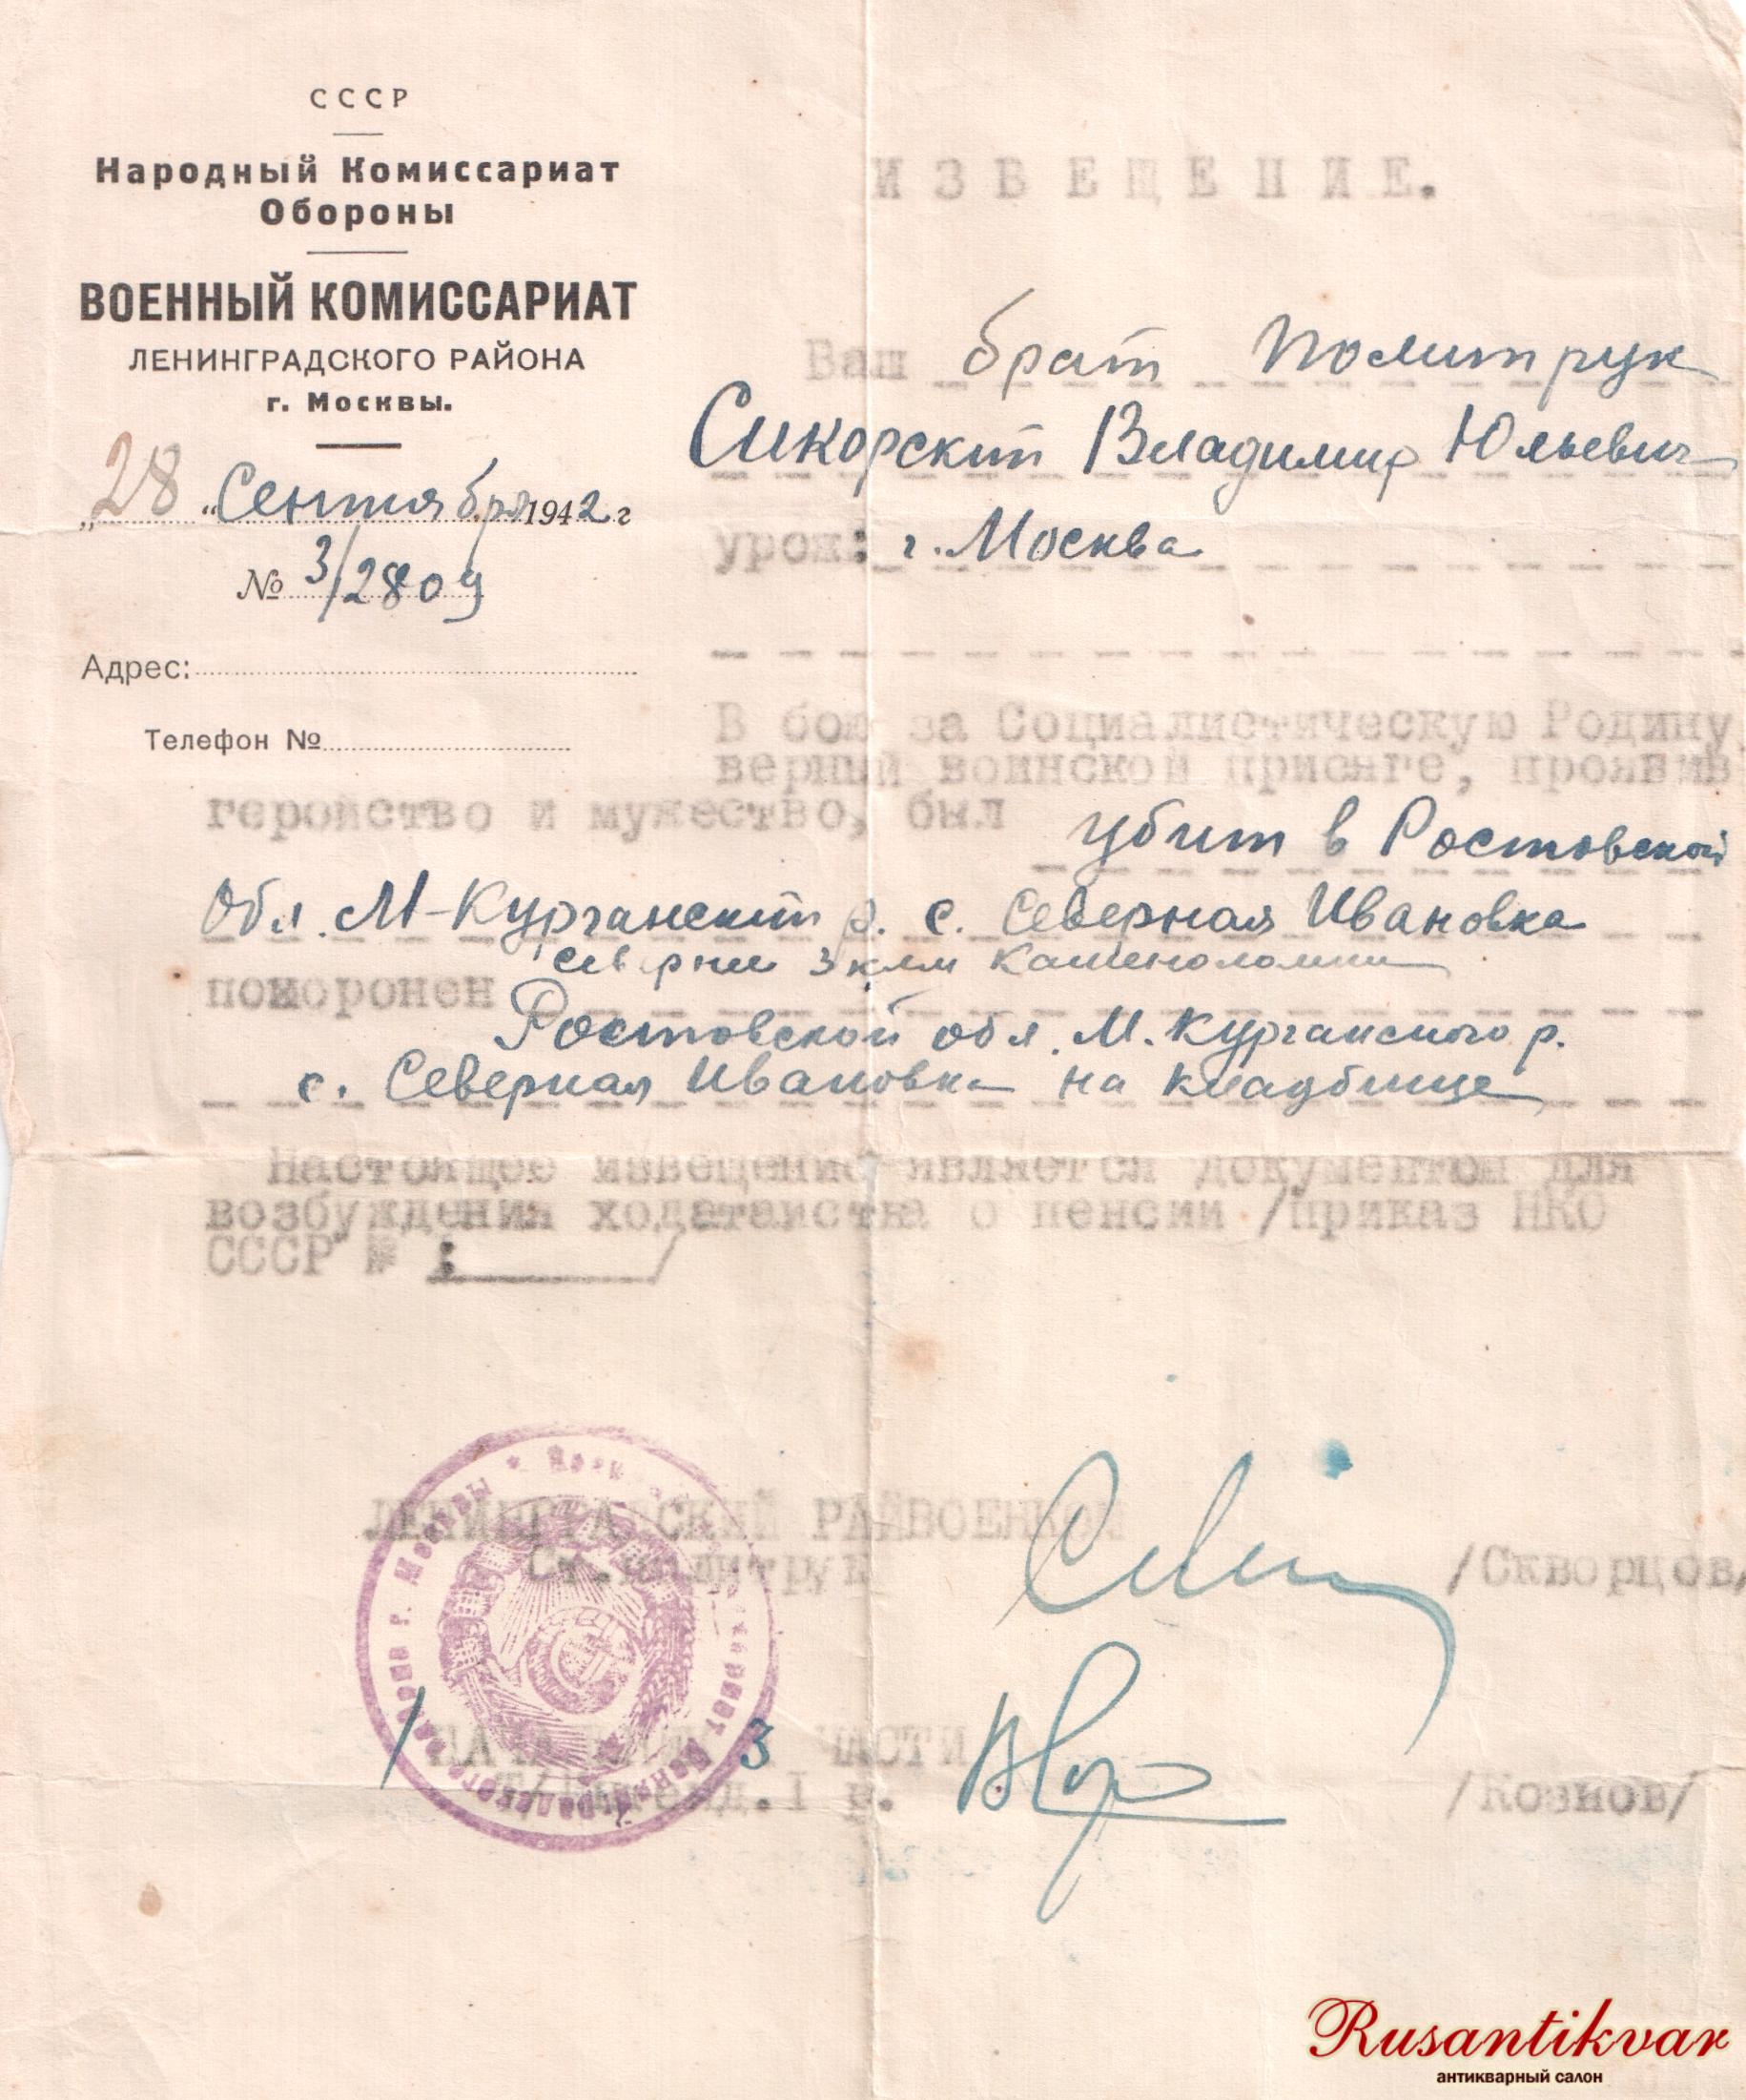 СССР
Народный Комиссариат
Обороны
ВОЕННЫЙ КОМИССАРИАТ
ЛЕНИНГРАДСКОГО РАЙОНА
г. Москвы.
„28" Сентября 1942 г
№ 3/2809
Адрес:
Телефон №
ИЗВЕЩЕНИЕ.
Ваш брат политрук
Сикорский Владимир Юльевич
урож: г. Москва
В бою за Социалистическую Родину,
верный воинской присяге, проявив
геройство и мужество, был убит в Ростовской
Обл. М-Курганский р. с. Северная Ивановка
севернее 3 клм Каменоломни
похоронен
Ростовской обл. М. Курганского р.
с. Северная Ивановка на кладбище
Настоящее извещение является документом для
возбуждения ходатайства о пенсии /приказ НКО
СССР № /
ЛЕНИНГРАДСКИЙ РАЙВОЕНКОМ
Ст.политрук /Скворцов/
НАЧАЛЬНИК 3 ЧАСТИ
д.I р. /Кознов/
Rusantikvar
антикварный салон